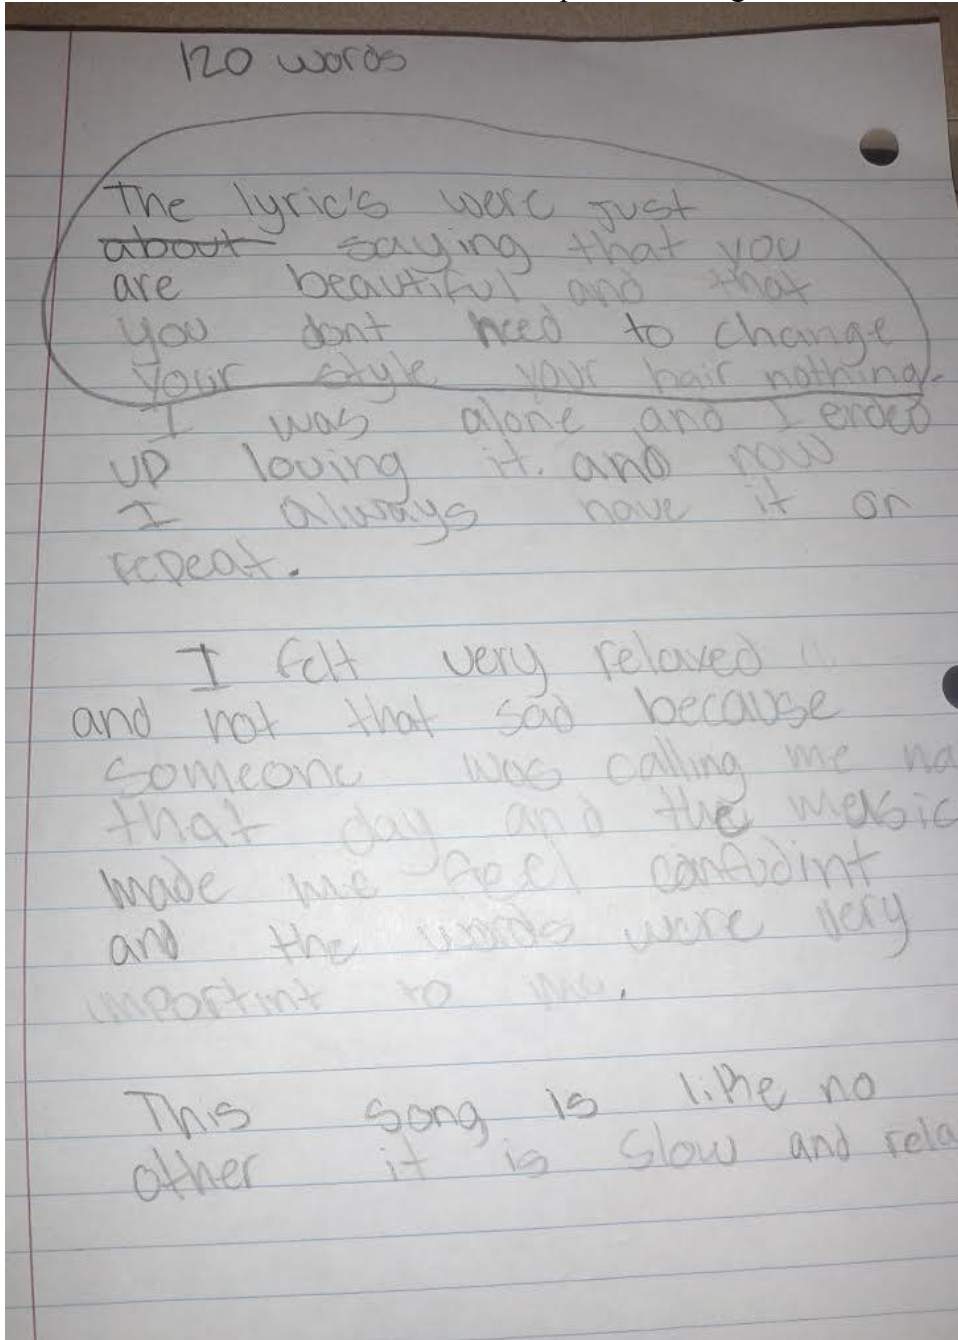 120 words
The lyric's were just
about saying that you
are beautiful and that
you dont need to change
your style your hair nothing.
I was alone and I ended
up loving it. and now
I always have it on
repeat.
I felt very relaxed
and not that sad because
someone was calling me na
that day and the music
made me feel confidint
and the words were very
importint to me.
This song is like no
other it is slow and rela